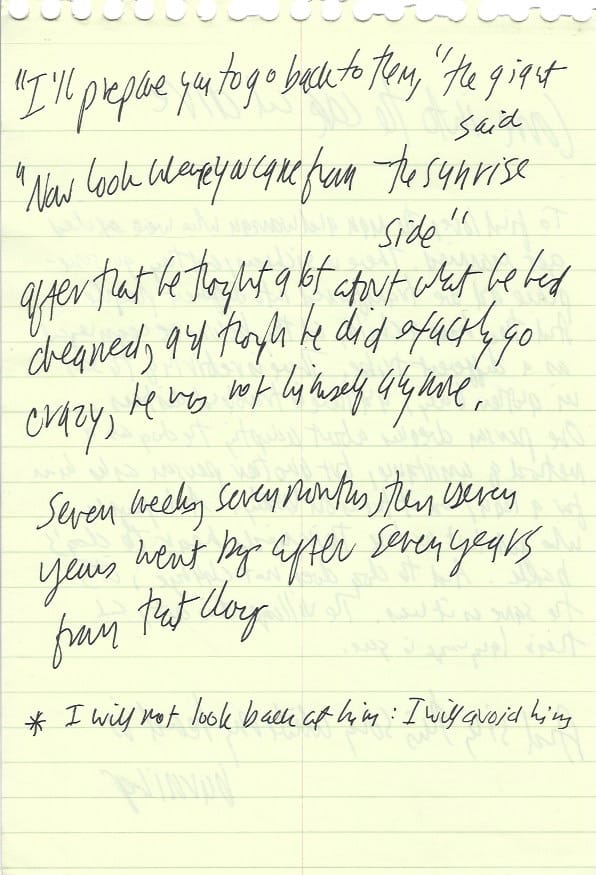 "I'll prepare you to go back to them," the giant
said
"Now look where you came from – the sunrise
side"
after that he thought a lot about what he had
dreamed, and though he did exactly go
crazy, he was not himself anymore.
Seven weeks, seven months, then seven
years went by after seven years
from that day
* I will not look back at him: I will avoid him